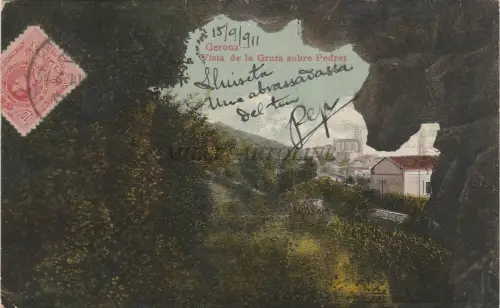 15/9/911
Gerona
Vista de la Gruta sobre Pedret
Lluiseta
Une abrassadassa
del teu
Pepe